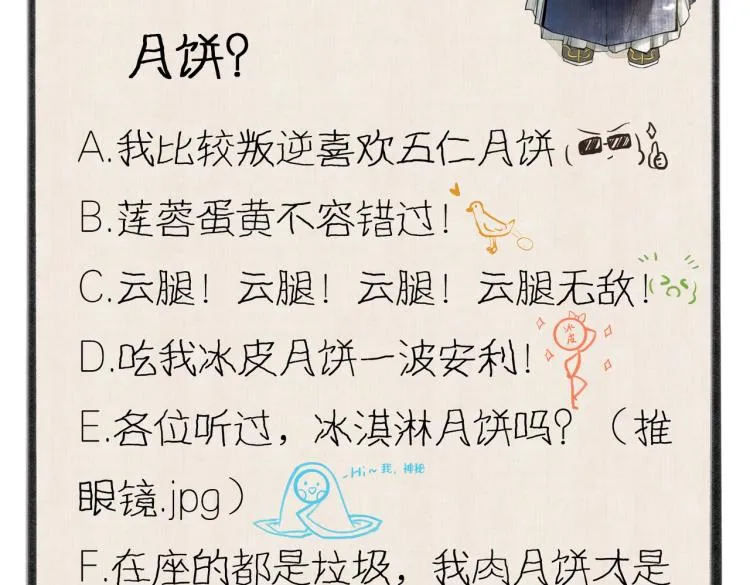 月饼?
A.我比较叛逆喜欢五仁月饼
B.莲蓉蛋黄不容错过!
C.云腿! 云腿! 云腿! 云腿无敌!
D.吃我冰皮月饼一波安利!
冰皮
E.各位听过，冰淇淋月饼吗? （推
眼镜.jpg）
Hi~我，神秘
F.在座的都是垃圾，我肉月饼才是